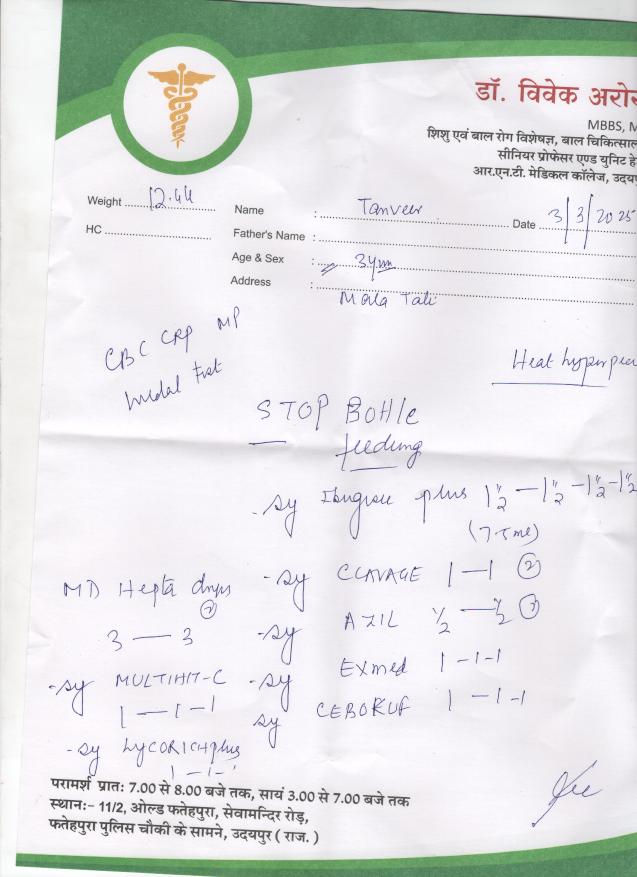 डॉ. विवेक अरो
MBBS, M
शिशु एवं बाल रोग विशेषज्ञ, बाल चिकित्सा
सीनियर प्रोफेसर एण्ड युनिट हे
आर.एन.टी. मेडिकल कॉलेज, उदय
Weight 12.44
Name : Tanveer Date 3/3/2025
HC
Father's Name :
Age & Sex : 3y
Address : Tali
CBC CRP MP
STOP Bottle
feeding
Heat
sy plus 1½ — 1½ - 1½ - 1½
sy CLAVAGE 1 — 1
MD Hepta drops
3 — 3
sy AZIL ½ — ½
sy EXmed 1 - 1 - 1
sy MULTIHIT-C
1 — 1 - 1
sy 1 - 1 - 1
sy LYCORICH plus
1 - 1 -
परामर्श प्रातः 7.00 से 8.00 बजे तक, सायं 3.00 से 7.00 बजे तक
स्थान:- 11/2, ओल्ड फतेहपुरा, सेवामन्दिर रोड़,
फतेहपुरा पुलिस चौकी के सामने, उदयपुर ( राज. )